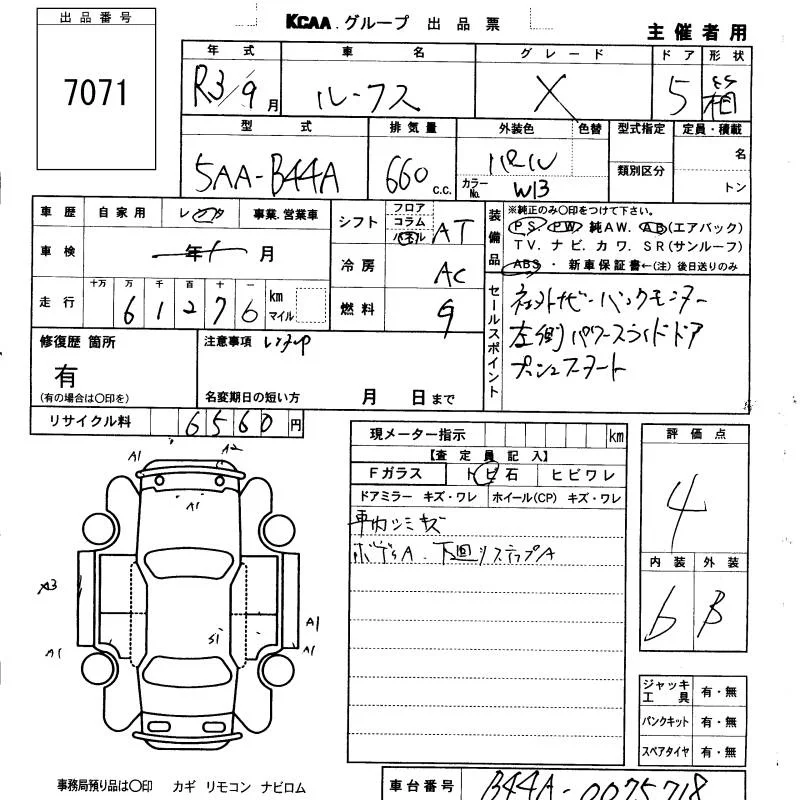 出品番号
7071
KCAA.グループ 出品票
主催者用
年式 車名 グレード ドア 形状
R3/9月 ルークス X 5 箱
型式 排気量 外装色 色替 型式指定 定員・積載
5AA-B44A 660 c.c. パール
類別区分
名
カラーNo. W13
トン
車歴 自家用 レンタ 事業.営業車
車検 年 月
走行 十万 万 千 百 十 一
61276 km マイル
シフト フロア コラム パネル AT
冷房 AC
燃料 G
装備品
※純正のみ〇印をつけて下さい。
PS. PW. 純AW. AB(エアバック)
TV. ナビ. カワ. SR(サンルーフ)
ABS ・ 新車保証書←(注) 後日送りのみ
セールスポイント
左側パワースライドドア
プッシュスタート
修復歴 箇所
有
(有の場合は〇印を)
注意事項 レンタUP
名変期日の短い方 月 日まで
リサイクル料 6560円
現メーター指示 km
【査定員記入】
Fガラス トビ石 ヒビワレ
ドアミラー キズ・ワレ ホイール(CP) キズ・ワレ
車内シミキズ
評価点
4
内装 外装
b B
A1 A2
A1
A3
S1
A1
A1 A1
ジャッキ工具 有・無
パンクキット 有・無
スペアタイヤ 有・無
事務局預り品は〇印 カギ リモコン ナビロム
車台番号 B44A-0075718